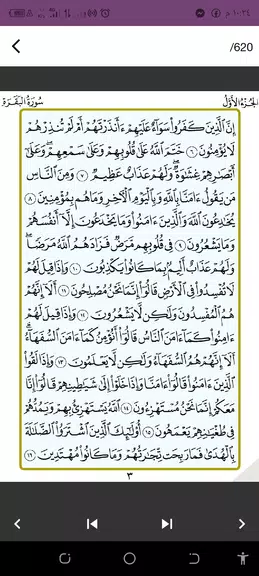 ١٠:٢٤
/620
الجزء الأول
سورة البقرة
إِنَّ ٱلَّذِينَ كَفَرُوا۟ سَوَآءٌ عَلَيْهِمْ ءَأَنذَرْتَهُمْ أَمْ لَمْ تُنذِرْهُمْ
لَا يُؤْمِنُونَ ٦ خَتَمَ ٱللَّهُ عَلَىٰ قُلُوبِهِمْ وَعَلَىٰ سَمْعِهِمْ وَعَلَىٰٓ
أَبْصَٰرِهِمْ غِشَٰوَةٌ وَلَهُمْ عَذَابٌ عَظِيمٌ ٧ وَمِنَ ٱلنَّاسِ
مَن يَقُولُ ءَامَنَّا بِٱللَّهِ وَبِٱلْيَوْمِ ٱلْءَاخِرِ وَمَا هُم بِمُؤْمِنِينَ ٨
يُخَٰدِعُونَ ٱللَّهَ وَٱلَّذِينَ ءَامَنُوا۟ وَمَا يَخْدَعُونَ إِلَّآ أَنفُسَهُمْ
وَمَا يَشْعُرُونَ ٩ فِى قُلُوبِهِم مَّرَضٌ فَزَادَهُمُ ٱللَّهُ مَرَضًا
وَلَهُمْ عَذَابٌ أَلِيمٌۢ بِمَا كَانُوا۟ يَكْذِبُونَ ١٠ وَإِذَا قِيلَ لَهُمْ
لَا تُفْسِدُوا۟ فِى ٱلْأَرْضِ قَالُوٓا۟ إِنَّمَا نَحْنُ مُصْلِحُونَ ١١ أَلَآ إِنَّهُمْ
هُمُ ٱلْمُفْسِدُونَ وَلَٰكِن لَّا يَشْعُرُونَ ١٢ وَإِذَا قِيلَ لَهُمْ
ءَامِنُوا۟ كَمَآ ءَامَنَ ٱلنَّاسُ قَالُوٓا۟ أَنُؤْمِنُ كَمَآ ءَامَنَ ٱلسُّفَهَآءُ
أَلَآ إِنَّهُمْ هُمُ ٱلسُّفَهَآءُ وَلَٰكِن لَّا يَعْلَمُونَ ١٣ وَإِذَا لَقُوا۟
ٱلَّذِينَ ءَامَنُوا۟ قَالُوٓا۟ ءَامَنَّا وَإِذَا خَلَوْا۟ إِلَىٰ شَيَٰطِينِهِمْ قَالُوٓا۟ إِنَّا
مَعَكُمْ إِنَّمَا نَحْنُ مُسْتَهْزِءُونَ ١٤ ٱللَّهُ يَسْتَهْزِئُ بِهِمْ وَيَمُدُّهُمْ
فِى طُغْيَٰنِهِمْ يَعْمَهُونَ ١٥ أُو۟لَٰٓئِكَ ٱلَّذِينَ ٱشْتَرَوُا۟ ٱلضَّلَٰلَةَ
بِٱلْهُدَىٰ فَمَا رَبِحَت تِّجَٰرَتُهُمْ وَمَا كَانُوا۟ مُهْتَدِينَ ١٦
٣